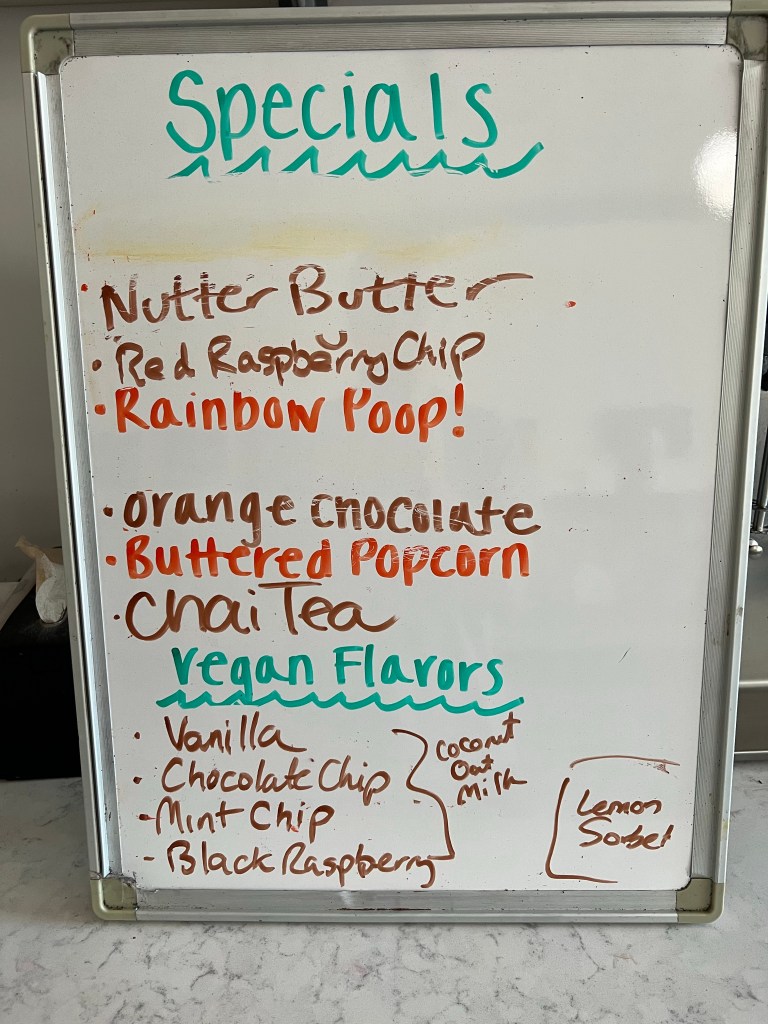 Specials
Nutter Butter
• Red Raspberry Chip
• Rainbow Poop!
• orange chocolate
• Buttered Popcorn
• Chai Tea
vegan Flavors
• Vanilla
• Chocolate Chip
- Mint Chip
- Black Raspberry
Coconut
Oat
Milk
Lemon
Sorbet